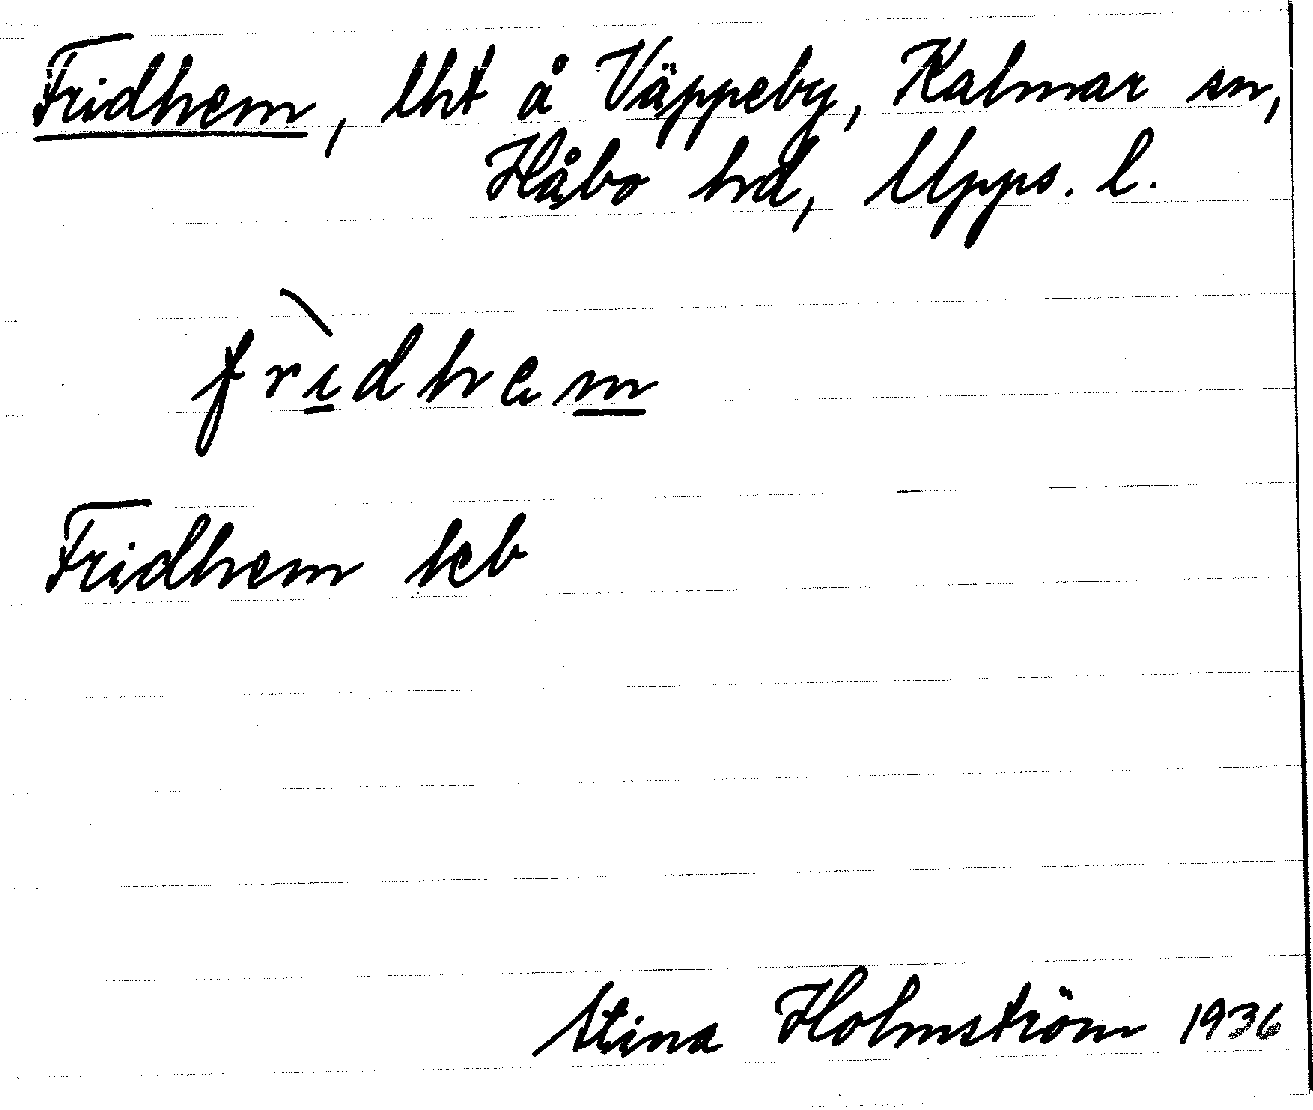 Fridhem, lht å Väppeby, Kalmar sn,
Håbo hd, Upps. l.
frìdhem
Fridhem keb
Stina Holmström 1936